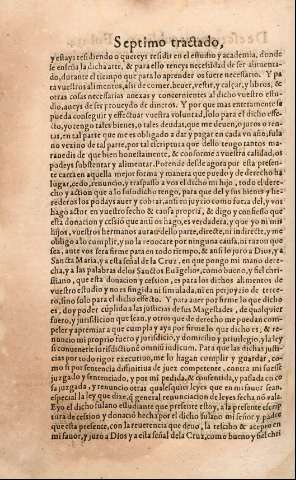 Septimo tractado,
y estays residiendo o quereys residir en el estudio y academia, donde
se enseña la dicha arte, & para ello teneys necesidad de ser alimenta-
do, durante el tiempo que para lo aprender os fuere necessario. Y pa
ra vuestros alimentos, assi de comer, beuer, vestir, y calçar, y libros, &
otras cosas necessarias anexas y concernientes al dicho vuestro estu-
dio, aueys de ser proueydo de dineros. Y por que mas enteramente se
pueda conseguir y effectuar vuestra voluntad, solo para el dicho effe-
cto, yo tengo tales bienes, o tales deudas, que me deuen, o juros o ren-
tas, en tal parte que me es obligado a dar y pagar en cada vn año, fula
no vezino de tal parte, por tal escriptura que dello tengo tantos ma-
rauedis de que bien honestamente, & conforme a vuestra calidad, os
podeys sustentar y alimentar. Por ende desde agora por esta presen-
te carta en aquella mejor forma y manera que puedo y de derecho ha
lugar, cedo, renuncio, y traspasso a vos el dicho mi hijo, todo el dere-
cho y action que a lo susodicho tengo, para que del y sus bienes y he-
rederos los podays auer y cobrar, assi en juyzio como fuera del, y vos
hago actor en vuestro fecho & causa propria, & digo y confiesso que
esta donacion y cession que assi os hago, es verdadera, y que yo ni mis
hijos, vuestros hermanos auran dello parte, directe, ni indirecte, y me
obligo a lo cumplir, y no la reuocare por ninguna causa, ni razon que
sea, ante vos sera firme para en todo tiempo, & assi lo juro a Dios, y a
Sancta Maria, y a esta señal de la Cruz, en que pongo mi mano dere-
cha, y a las palabras de los Sanctos Euãgelios, como bueno, y fiel chri-
stiano, que esta donacion y cession, es para los dichos alimentos de
vuestro estudio y no es fingida ni simulada, ni en perjuyzio de terce-
ro, sino solo para el dicho effecto. Y para auer por firme lo que dicho
es, doy poder cuplido a las justicias de sus Magestades, de qualquier
fuero, y jurisdicion que sean, y otros que de derecho me puedan com-
peler y apremiar a que cumpla y aya por firme lo que dicho es, & re-
nuncio mi proprio fuero y jurisdicion, y domicilio y priuilegio, y la ley
si conuenerit jurisdictione omnium iudicum. Para que las dichas justi-
cias por todo rigor executiuo, me lo hagan cumplir y guardar, co-
mo si por sentencia diffinitiua de juez competente, contra mi fuesse
juzgado y sentenciado, y por mi pedida, & consentida, y passada en co
sa juzgada, y renuncio otras qualesquier leyes que en mi fauor sean,
especial la ley que dize, q̃ general renunciacion de leyes fecha nõ vala.
E yo el dicho fulano estudiante que presente estoy, a la presente escri-
ura de cession y donacion hecha por el dicho fulano mi señor y padre
que esta presente, con la reuerencia que deuo, la rescibo & acepto en
mi fauor, y juro a Dios y a esta señal de la Cruz, como bueno y fiel chri